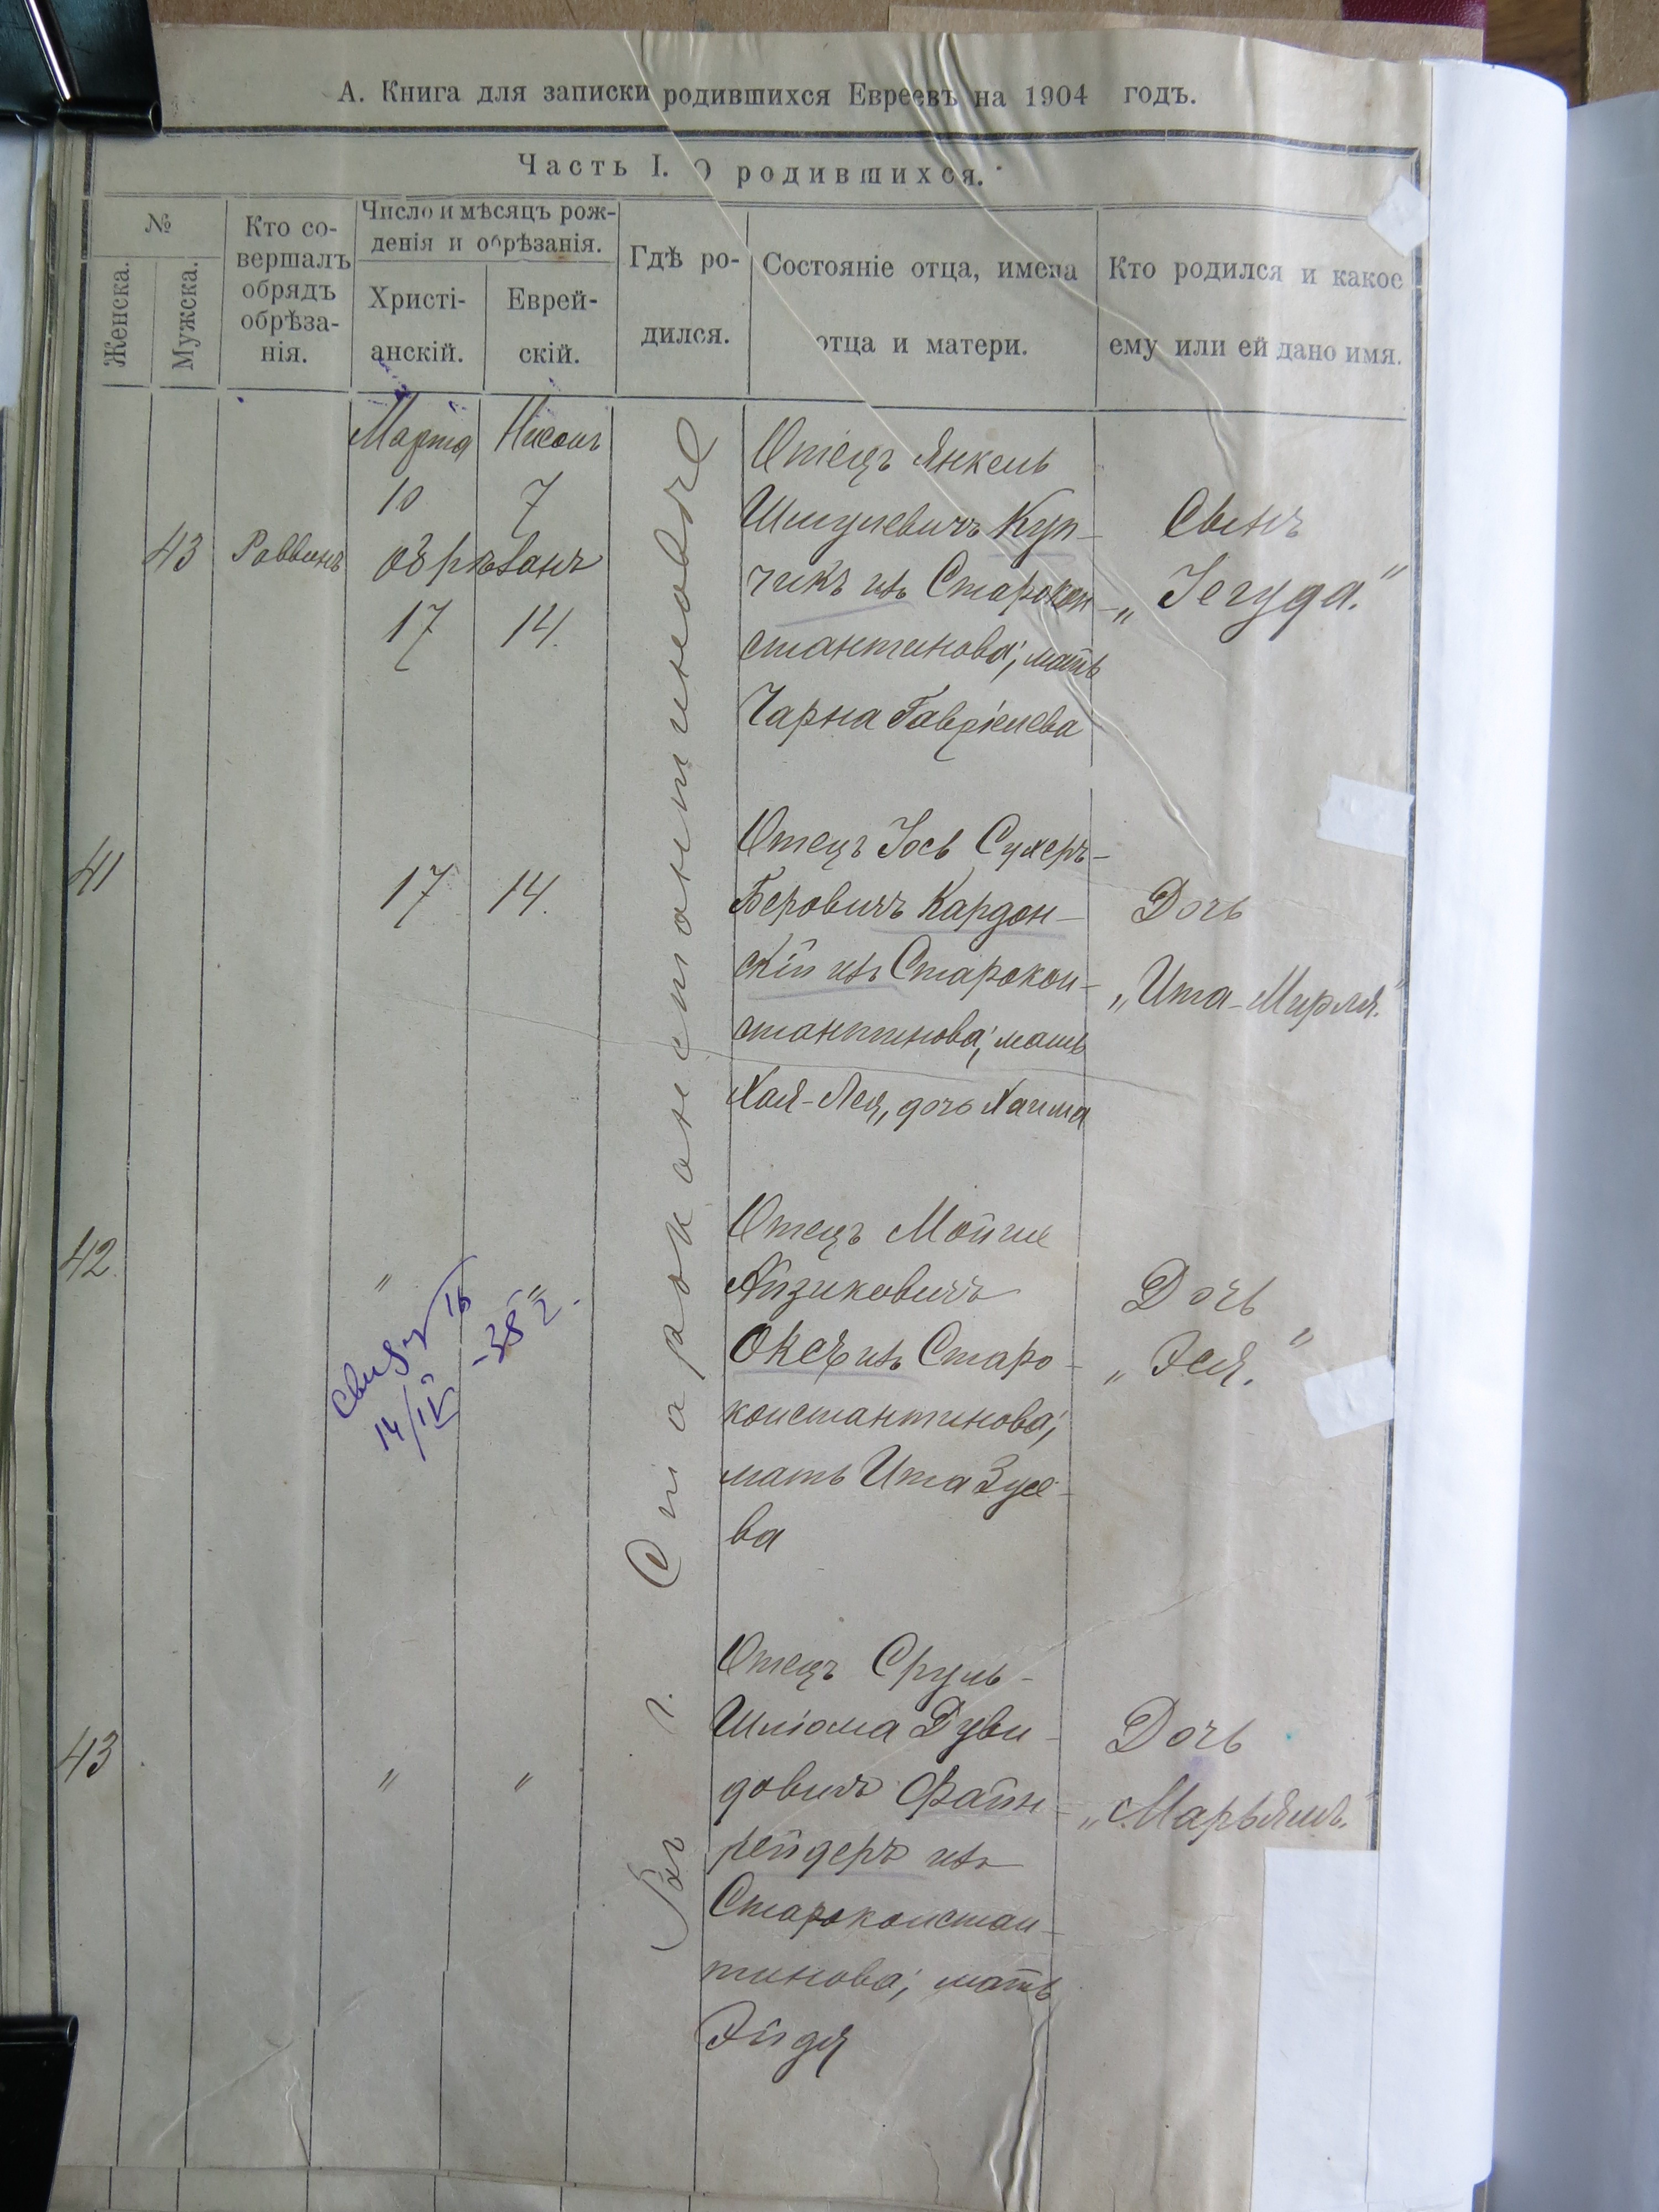 А. Книга для записки родившихся Евреевъ на 1904 годъ.
Часть I. О родившихся.
№
Женска.
Мужска.
Кто со-
вершалъ
обрядъ
обрѣза-
нія.
Число и мѣсяцъ рож-
денія и обрѣзанія.
Христі-
анскій.
Еврей-
скій.
Гдѣ ро-
дился.
Состояніе отца, имена
отца и матери.
Кто родился и какое
ему или ей дано имя.
43
Раввинъ
Марта
10
Нисонъ
7
обрѣзанъ
17
14.
Въ г. Староконстантиновѣ
Отецъ Янкель
Шмулевичъ Куп-
чикъ изъ Старокон-
стантинова; мать
Чарна Гавріилева
Сынъ
„Іегуда.“
41
17
14.
Отецъ Іось Сухеръ-
Беровичъ Кардон-
скій изъ Старокон-
стантинова; мать
Хая-Лея, дочь Хаима
Дочь
„Ита-Мирля.“
42
"
"
14/IV -38 г.
Отецъ Мойше
Айзиковичъ
Оксъ изъ Старо-
константинова;
мать Ита Зусе-
ва
Дочь
„Эся.“
43
"
"
Отецъ Сруль-
Шлiома Дуви-
довичъ Файн-
рейдеръ изъ
Староконстан-
тинова; мать
Эйдя
Дочь
„Марьямъ.“